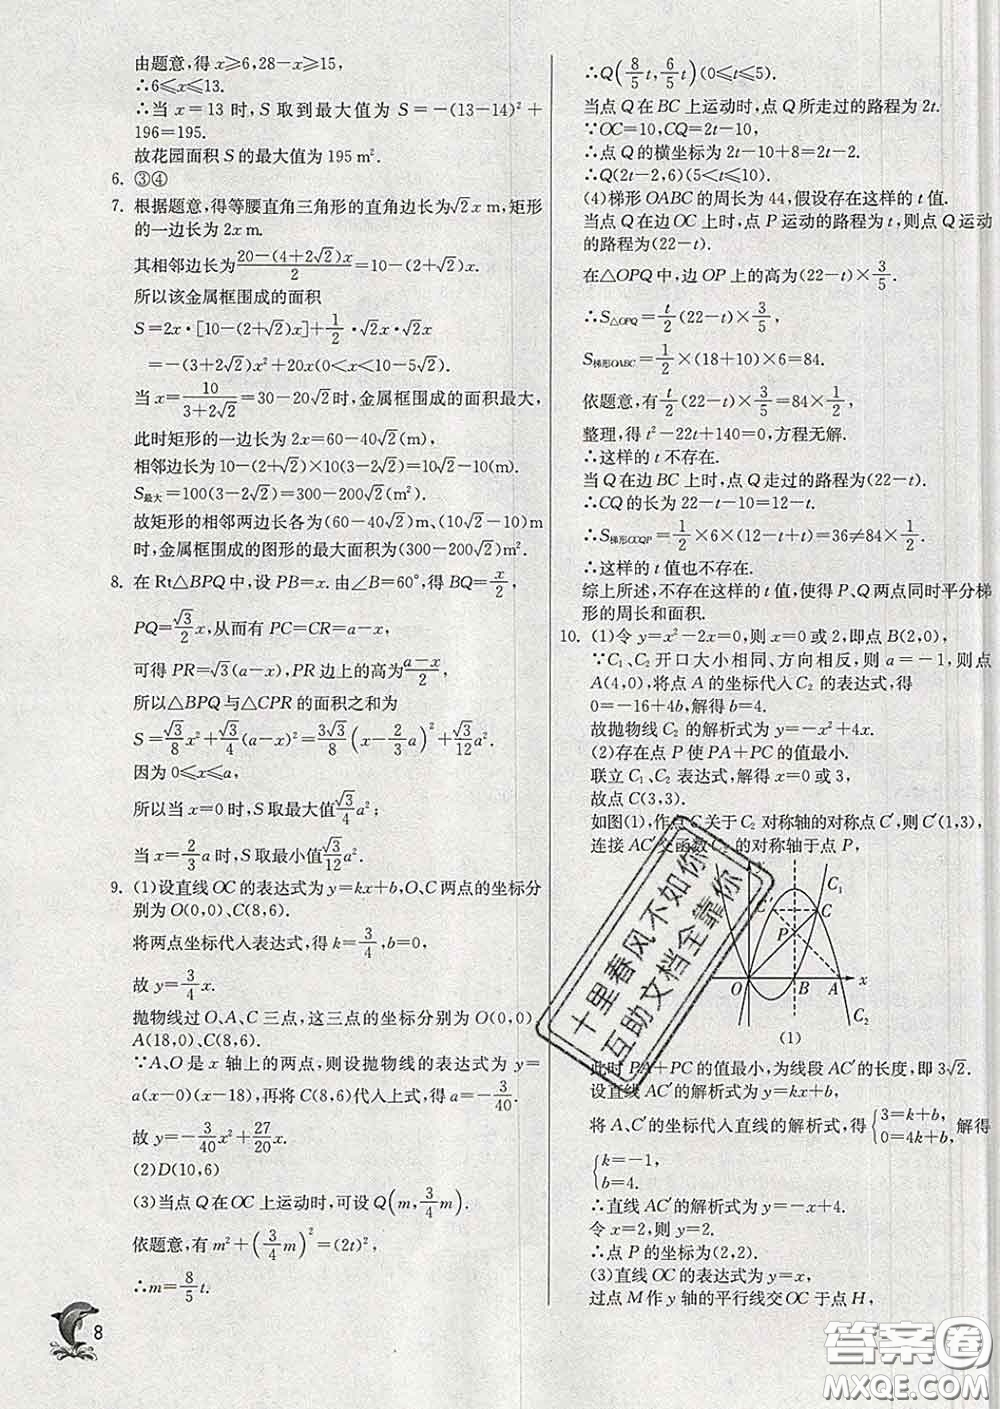 由题意,得 x⩾6,28−x⩾15,
∴6⩽x⩽13.
∴当 x=13 时,S 取到最大值为 S=−(13−14)²+
196=195.
故花园面积 S 的最大值为 195 m².
6. ③④
7. 根据题意,得等腰直角三角形的直角边长为√2x m,矩形
的一边长为 2x m.
其相邻边长为(20−(4+2√2)x)/2=10−(2+√2)x.
所以该金属框围成的面积
S=2x·[10−(2+√2)x]+1/2·√2x·√2x
=−(3+2√2)x²+20x(0<x<10−5√2).
当 x=10/(3+2√2)=30−20√2时,金属框围成的面积最大,
此时矩形的一边长为 2x=60−40√2(m),
相邻边长为 10−(2+√2)×10(3−2√2)=10√2−10(m).
S最大=100(3−2√2)=300−200√2(m²).
故矩形的相邻两边长各为(60−40√2)m、(10√2−10)m
时,金属框围成的图形的面积最大,为(300−200√2)m².
8. 在 Rt△BPQ 中,设 PB=x. 由∠B=60°,得 BQ=x/2,
PQ=√3/2x,从而有 PC=CR=a−x,
可得 PR=√3(a−x),PR 边上的高为(a−x)/2,
所以△BPQ 与△CPR 的面积之和为
S=√3/8x²+√3/4(a−x)²=3√3/8(x−2/3a)²+√3/12a².
因为 0⩽x⩽a,
所以当 x=0 时,S 取最大值√3/4a²;
当 x=2/3a 时,S 取最小值√3/12a².
9. (1)设直线 OC 的表达式为 y=kx+b,O、C 两点的坐标分
别为 O(0,0)、C(8,6).
将两点坐标代入表达式,得 k=3/4,b=0,
故 y=3/4x.
抛物线过 O、A、C 三点,这三点的坐标分别为 O(0,0)、
A(18,0)、C(8,6).
∵A、O 是 x 轴上的两点,则设抛物线的表达式为 y=
a(x−0)(x−18),再将 C(8,6)代入上式,得 a=−3/40.
故 y=−3/40x²+27/20x.
(2)D(10,6)
(3)当点 Q 在OC 上运动时,可设 Q(m,3/4m).
依题意,有 m²+(3/4m)²=(2t)²,
∴m=8/5t.
8
∴Q(8/5t,6/5t)(0⩽t⩽5).
当点 Q 在 BC 上运动时,点 Q 所走过的路程为 2t.
∵OC=10,CQ=2t−10,
∴点 Q 的横坐标为 2t−10+8=2t−2.
∴Q(2t−2,6)(5<t⩽10).
(4)梯形 OABC 的周长为 44,假设存在这样的 t 值.
当点 Q 在边 OC 上时,点 P 运动的路程为 t,则点 Q 运动
的路程为(22−t).
在△OPQ 中,边 OP 上的高为(22−t)×3/5,
∴S△OPQ=t/2(22−t)×3/5,
S梯形OABC=1/2×(18+10)×6=84.
依题意,有t/2(22−t)×3/5=84×1/2,
整理,得 t²−22t+140=0,方程无解.
∴这样的 t 不存在.
当 Q 在边 BC 上时,点 Q 走过的路程为(22−t).
∴CQ 的长为 22−t−10=12−t.
∴S梯形OCQP=1/2×6×(12−t+t)=36≠84×1/2.
∴这样的 t 值也不存在.
综上所述,不存在这样的 t 值,使得 P、Q 两点同时平分梯
形的周长和面积.
10. (1)令 y=x²−2x=0,则 x=0 或 2,即点 B(2,0),
∵C₁、C₂ 开口大小相同、方向相反,则 a=−1,则点
A(4,0),将点 A 的坐标代入 C₂ 的表达式,得
0=−16+4b,解得 b=4.
故抛物线 C₂ 的解析式为 y=−x²+4x.
(2)存在点 P 使 PA+PC 的值最小.
联立 C₁、C₂ 表达式,解得 x=0 或 3,
故点 C(3,3).
如图(1),作点 C 关于 C₂ 对称轴的对称点 C′,则 C′(1,3),
连接 AC′交函数 C₂ 的对称轴于点 P,
C₁
C
P
O B A x
C₂
(1)
此时 PA+PC 的值最小,为线段 AC′的长度,即 3√2.
设直线 AC′的解析式为 y=kx+b,
将 A、C′的坐标代入直线的解析式,得{3=k+b, 0=4k+b,解得
{k=−1, b=4.
∴直线 AC′的解析式为 y=−x+4.
令 x=2,则 y=2.
∴点 P 的坐标为(2,2).
(3)直线 OC 的表达式为 y=x,
过点 M 作 y 轴的平行线交 OC 于点 H,
十里春风不如你
互助文档全靠你
答案圈
MXQE.COM